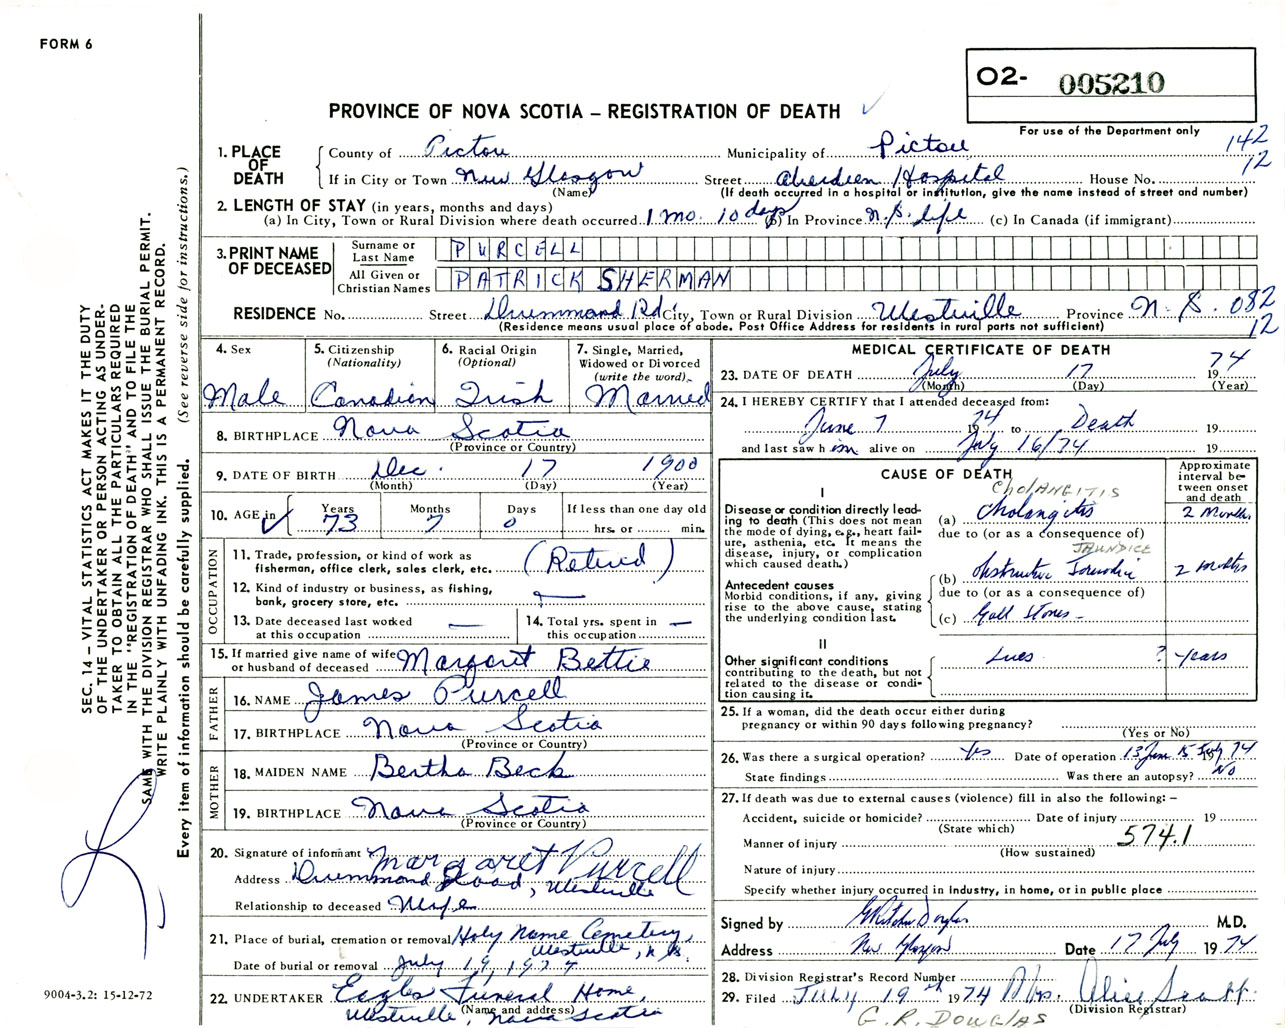 FORM 6
O2- 005210
PROVINCE OF NOVA SCOTIA – REGISTRATION OF DEATH
For use of the Department only
142
12
1. PLACE OF DEATH
County of Pictou Municipality of Pictou
If in City or Town New Glasgow Street Aberdeen Hospital House No.
(Name) (If death occurred in a hospital or institution, give the name instead of street and number)
2. LENGTH OF STAY (in years, months and days)
(a) In City, Town or Rural Division where death occurred 1 mo. 10 days (b) In Province N.S. life (c) In Canada (if immigrant)
3. PRINT NAME OF DECEASED
Surname or Last Name PURCELL
All Given or Christian Names PATRICK SHERMAN
RESIDENCE No. Street Drummond Rd City, Town or Rural Division Westville Province N.S. 082
12
(Residence means usual place of abode. Post Office Address for residents in rural parts not sufficient)
4. Sex
Male
5. Citizenship
(Nationality)
Canadian
6. Racial Origin
(Optional)
Irish
7. Single, Married,
Widowed or Divorced
(write the word)
Married
8. BIRTHPLACE Nova Scotia
(Province or Country)
9. DATE OF BIRTH Dec. 17 1900
(Month) (Day) (Year)
10. AGE in Years Months Days If less than one day old
73 7 0 hrs. or min.
OCCUPATION
11. Trade, profession, or kind of work as
fisherman, office clerk, sales clerk, etc. (Retired)
12. Kind of industry or business, as fishing,
bank, grocery store, etc. —
13. Date deceased last worked
at this occupation —
14. Total yrs. spent in
this occupation —
15. If married give name of wife
or husband of deceased Margaret Bettie
FATHER
16. NAME James Purcell
17. BIRTHPLACE Nova Scotia
(Province or Country)
MOTHER
18. MAIDEN NAME Bertha Beck
19. BIRTHPLACE Nova Scotia
(Province or Country)
20. Signature of informant Margaret Purcell
Address Drummond Road, Westville
Relationship to deceased Wife
21. Place of burial, cremation or removal Holy Name Cemetery,
Westville, N.S.
Date of burial or removal July 19, 1974
22. UNDERTAKER Eagles Funeral Home,
(Name and address)
Westville, Nova Scotia
MEDICAL CERTIFICATE OF DEATH
23. DATE OF DEATH July 17 1974
(Month) (Day) (Year)
24. I HEREBY CERTIFY that I attended deceased from:
June 7 1974 to Death 19
and last saw him alive on July 16/74 19
CAUSE OF DEATH
Approximate
interval be-
tween onset
and death
I
CHOLANGITIS
Disease or condition directly lead-
ing to death (This does not mean
the mode of dying, e.g., heart fail-
ure, asthenia, etc. It means the
disease, injury, or complication
which caused death.)
(a) Cholangitis 2 Months
due to (or as a consequence of)
JAUNDICE
Antecedent causes
Morbid conditions, if any, giving
rise to the above cause, stating
the underlying condition last.
(b) Obstructive Jaundice 2 months
due to (or as a consequence of)
(c) Gall Stones –
II
Other significant conditions
contributing to the death, but not
related to the disease or condi-
tion causing it.
Lues ? years
25. If a woman, did the death occur either during
pregnancy or within 90 days following pregnancy?
(Yes or No)
26. Was there a surgical operation? Yes Date of operation 13 June 15 July 1974
State findings Was there an autopsy? No
27. If death was due to external causes (violence) fill in also the following: –
Accident, suicide or homicide? Date of injury 19
(State which)
574.1
Manner of injury
(How sustained)
Nature of injury
Specify whether injury occurred in industry, in home, or in public place
Signed by Douglas M.D.
Address New Glasgow Date 17 July 1974
28. Division Registrar's Record Number
29. Filed JULY 19th 1974 Mrs. Alice
(Division Registrar)
G. R. DOUGLAS
SEC. 14 – VITAL STATISTICS ACT MAKES IT THE DUTY
OF THE UNDERTAKER OR PERSON ACTING AS UNDER-
TAKER TO OBTAIN ALL THE PARTICULARS REQUIRED
IN THE "REGISTRATION OF DEATH" AND TO FILE THE
SAME WITH THE DIVISION REGISTRAR WHO SHALL ISSUE THE BURIAL PERMIT.
WRITE PLAINLY WITH UNFADING INK. THIS IS A PERMANENT RECORD.
Every item of information should be carefully supplied. (See reverse side for instructions.)
9004-3.2: 15-12-72